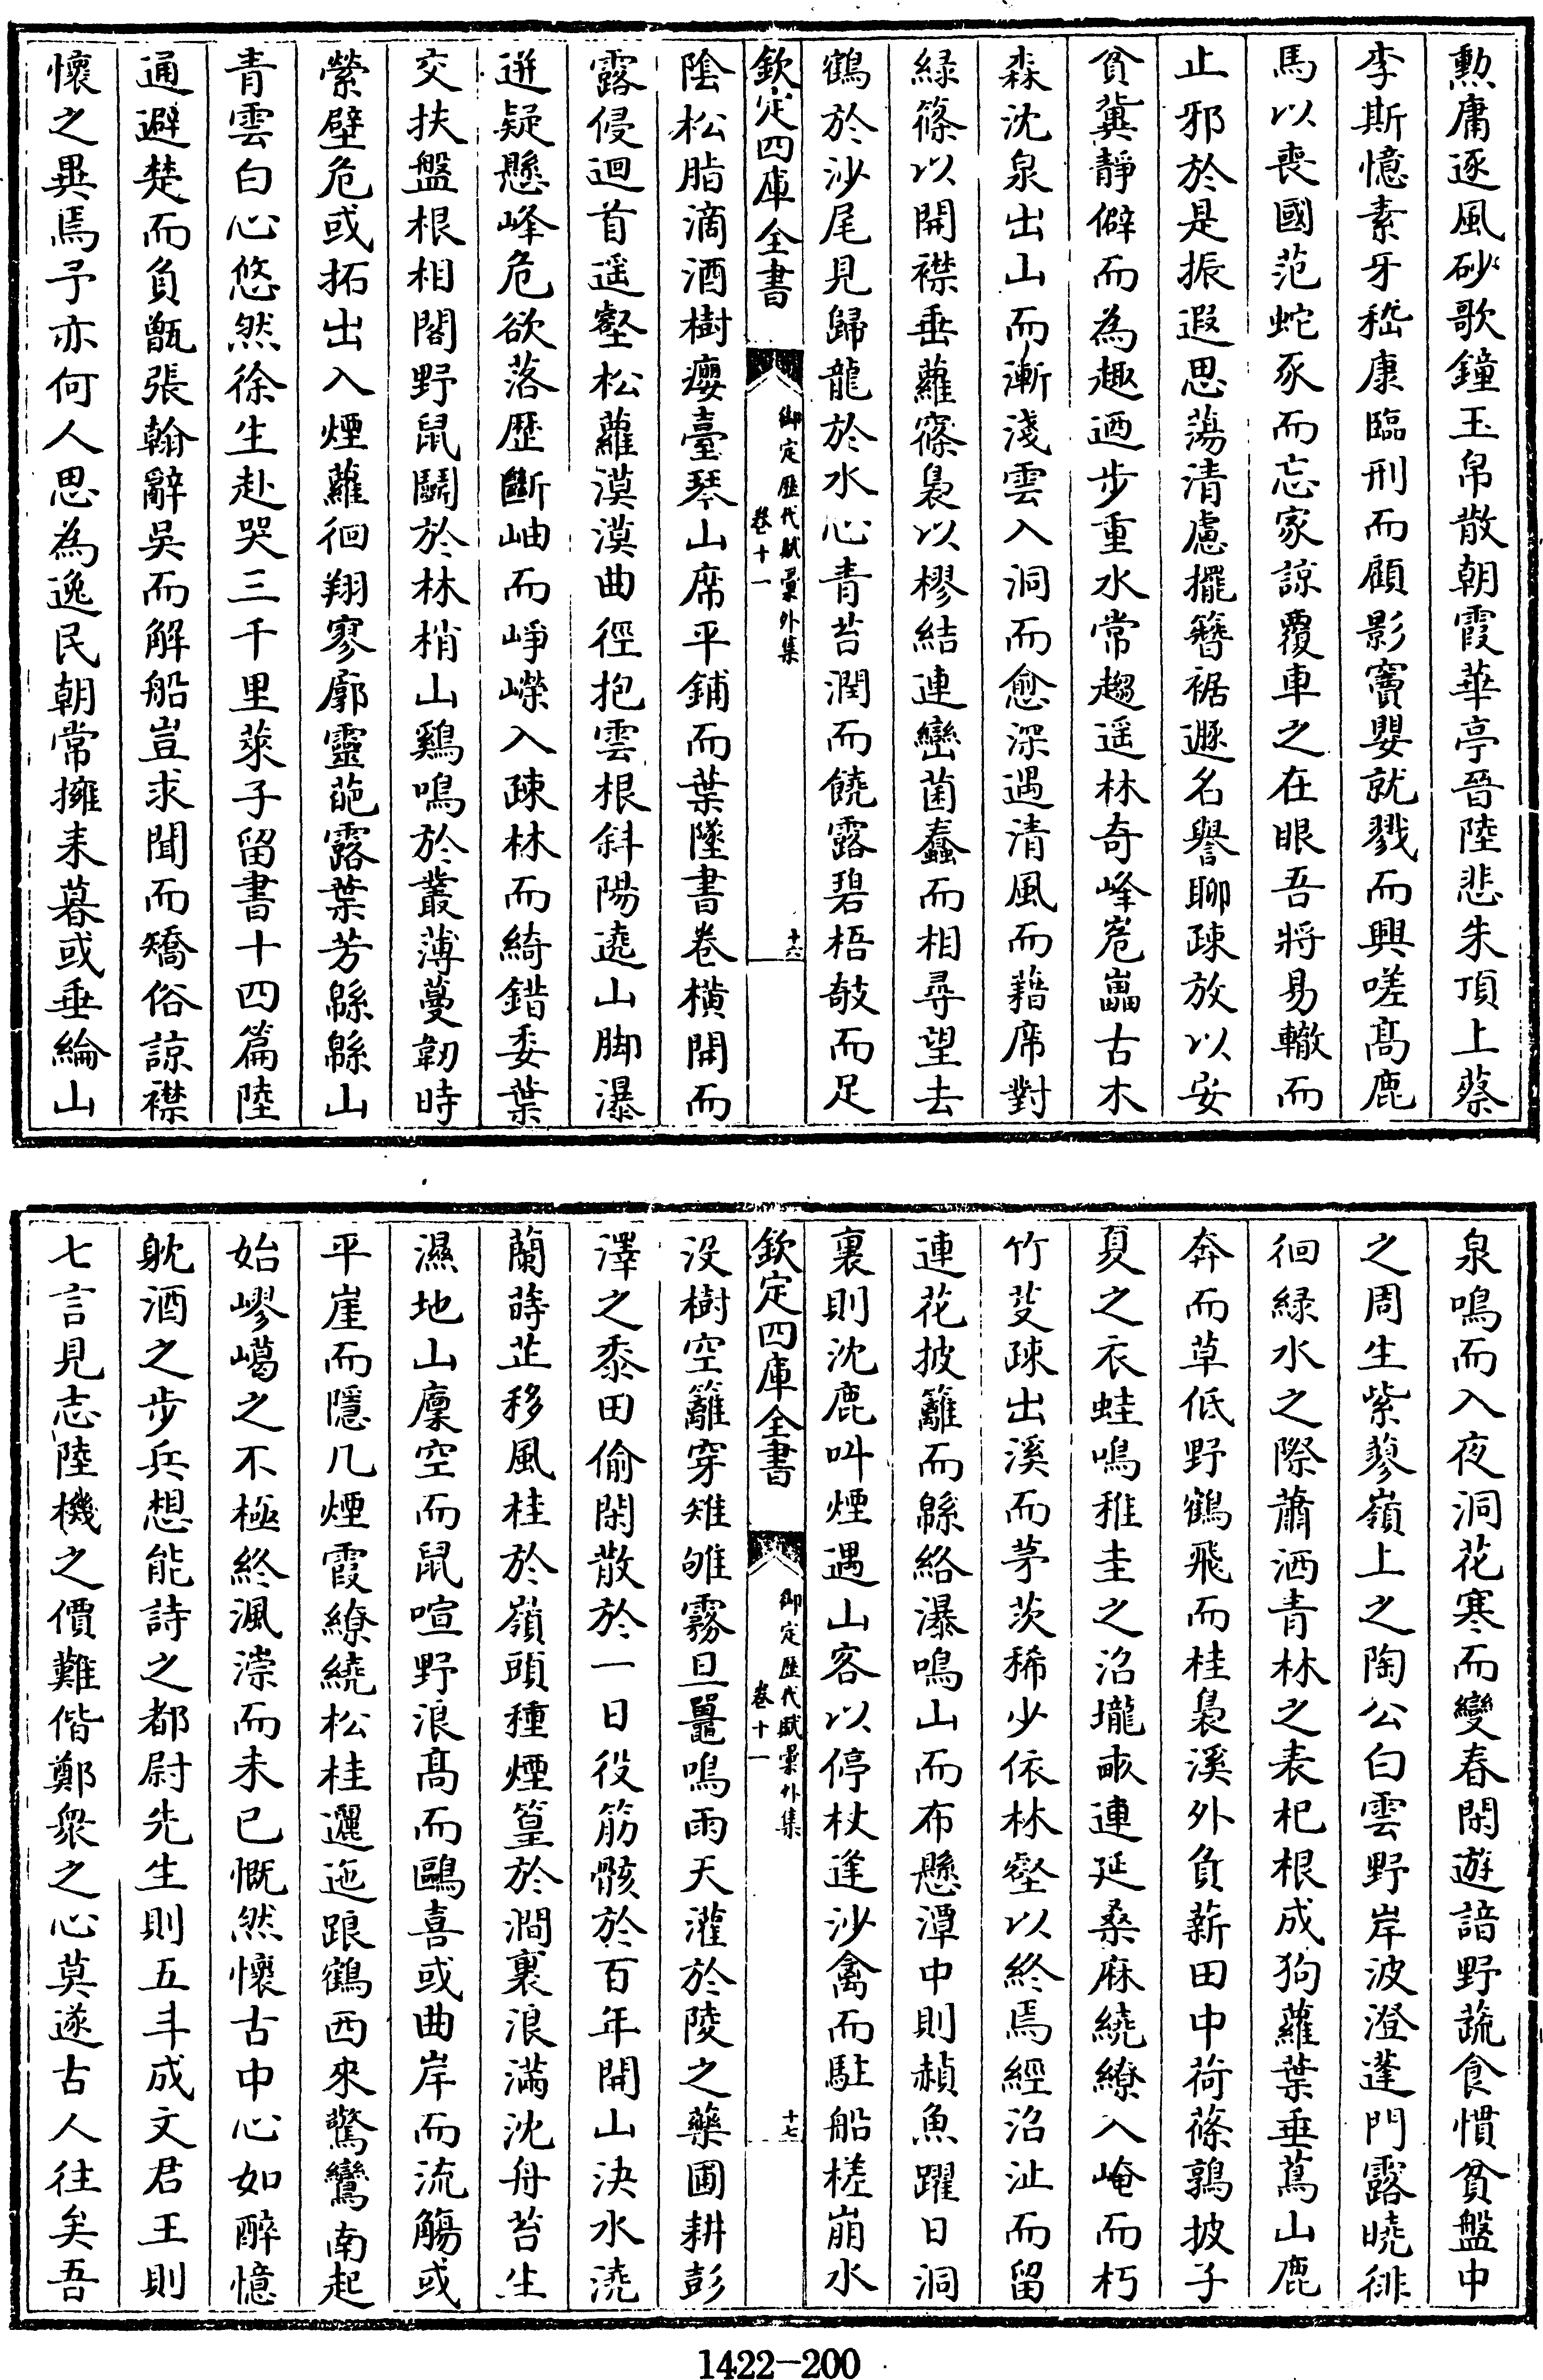 勲庸逐風砂歌鐘玉帛散朝霞華亭晉陸悲朱頂上蔡
李斯憶素牙嵇康臨刑而顧影竇嬰就戮而興嗟髙鹿
馬以喪國范蛇豕而忘家諒覆車之在眼吾將易轍而
止邪於是振遐思蕩清慮擺簪裾遯名譽聊疎放以安
貧冀靜僻而為趣迺步重水常趨遥林奇峰岩畾古木
森沈泉出山而漸淺雲入洞而愈深遇清風而藉席對
緑篠以開襟垂蘿窱裊以樛結連巒菌蠢而相尋望去
鶴於沙尾見歸龍於水心青苔潤而饒露碧梧攲而足
欽定四庫全書
御定歴代賦彚外集
卷十一
十六
陰松脂滴酒樹癭臺琴山席平鋪而葉墜書卷橫開而
露侵迴首遥壑松蘿漠漠曲徑抱雲根斜陽遶山脚瀑
迸疑懸峰危欲落歴斷岫而崢嶸入疎林而綺錯委葉
交扶盤根相閣野鼠鬬於林梢山鷄鳴於叢薄蔓韌時
縈壁危或拓出入煙蘿徊翔寥廓靈葩露葉芳緜緜山
青雲白心悠然徐生赴哭三千里萊子留書十四篇陸
通避楚而負甑張翰辭吳而解船豈求聞而矯俗諒襟
懐之異焉予亦何人思為逸民朝常擁耒暮或垂綸山
泉鳴而入夜洞花寒而變春閑遊諳野蔬食慣貧盤中
之周生紫蓼嶺上之陶公白雲野岸波澄蓬門露曉徘
徊緑水之際蕭洒青林之表杞根成狗蘿葉垂蔦山鹿
奔而草低野鶴飛而桂裊溪外負薪田中荷蓧鶉披子
夏之衣蛙鳴稚圭之沼壠畝連延桑麻繞繚入崦而朽
竹芟疎出溪而茅茨稀少依林壑以終焉經沼沚而留
連花披籬而緜絡瀑鳴山而布懸潭中則赬魚躍日洞
裏則沈鹿叫煙遇山客以停杖逢沙禽而駐船槎崩水
欽定四庫全書
御定歴代賦彚外集
卷十一
十七
没樹空籬穿雉雊霧旦鼉鳴雨天灌於陵之藥圃耕彭
澤之黍田偷閑散於一日役筋骸於百年開山決水澆
蘭蒔芷移風桂於嶺頭種煙篁於澗裏浪滿沈舟苔生
濕地山廩空而鼠喧野浪髙而鷗喜或曲岸而流觴或
平崖而隱几煙霞繚繞松桂邐迤踉鶴西來驚鸞南起
始嵺嶱之不極終渢漴而未已慨然懐古中心如醉憶
躭酒之步兵想能詩之都尉先生則五斗成文君王則
七言見志陸機之價難偕鄭衆之心莫遂古人往矣吾
1422-200